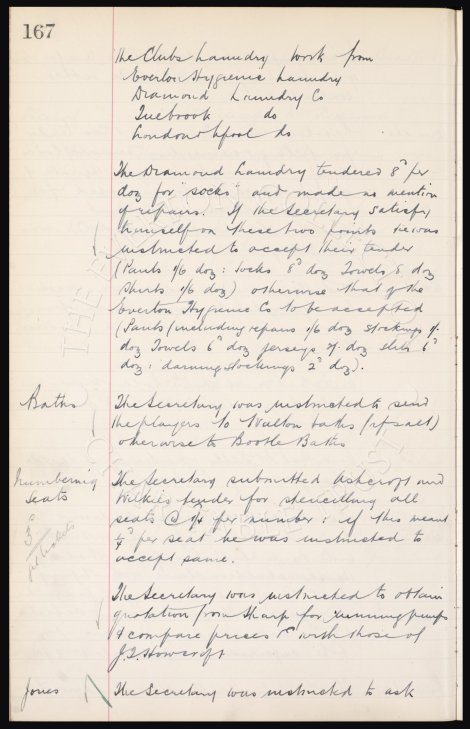 167
The Clubs Laundry work from
Everton Hygienic Laundry
Diamond Laundry Co
Tuebrook do
London & Lpool do
The Diamond Laundry tendered 8d per
doz for "socks" and made no mention
of repairs. If the Secretary satisfy
himself on these two points he was
instructed to accept their tender
(Pants 1/6 doz: socks 8d doz Towels 8 doz
Shirts 1/6 doz) otherwise that of the
Everton Hygienic Co to be accepted
(Pants (including repairs 1/6 doz stockings 1/-
doz Towels 6d doz jerseys 1/- doz 6d
doz: darning stockings 2d doz).
Baths
The Secretary was instructed to send
the players to Walton baths (if salt)
otherwise to Bootle Baths
Numbering
Seats
The Secretary submitted Ashcroft and
Wilkies tender for stencilling all
seats @ per number: if this meant
1/4d per seat he was instructed to
accept same.
The Secretary was instructed to obtain
quotation from Sharp for running pumps
& compare prices &c with those of
J.S. Howcroft
Jones
The Secretary was instructed to ask